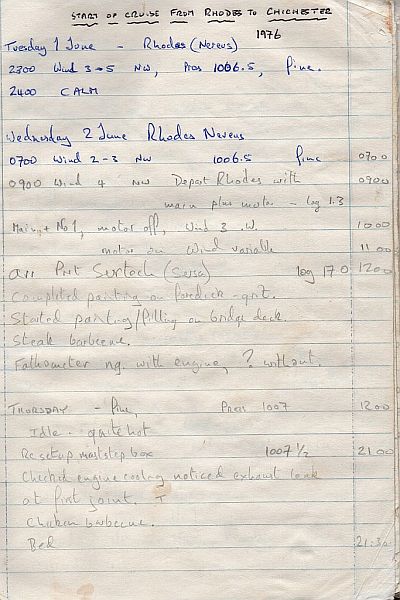 START OF CRUISE FROM RHODES TO CHICHESTER
1976
Tuesday 1 June - Rhodes (Nereus)
2300 Wind 3-5 NW, Pres 1006.5, fine.
2400 CALM
Wednesday 2 June Rhodes Nereus
0700 Wind 2-3 NW 1006.5 fine 0700
0900 Wind 4 NW Depart Rhodes with 0900
main plus motor - log 1.3
Main + No 1, motor off, Wind 3 W. 1000
motor on Wind variable 1100
arr Port log 17.0 1200
Completed painting on foredeck
Started painting/filling on bridge deck.
Steak barbecue.
Fathometer ng. with engine, ? without.
THURSDAY - fine, Pres 1007 1200
Idle - quite hot
Re setup mast step box 1007 1/2 2100
Checked engine cooling noticed exhaust leak
at first joint.
Chicken barbecue.
Bed 21:30